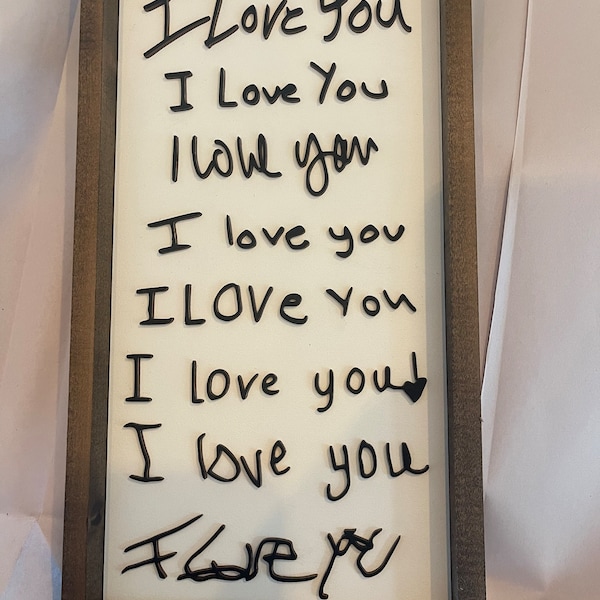 I Love You
I Love You
I love you
I love you
I LOVE You
I love you
I love you
I Love you